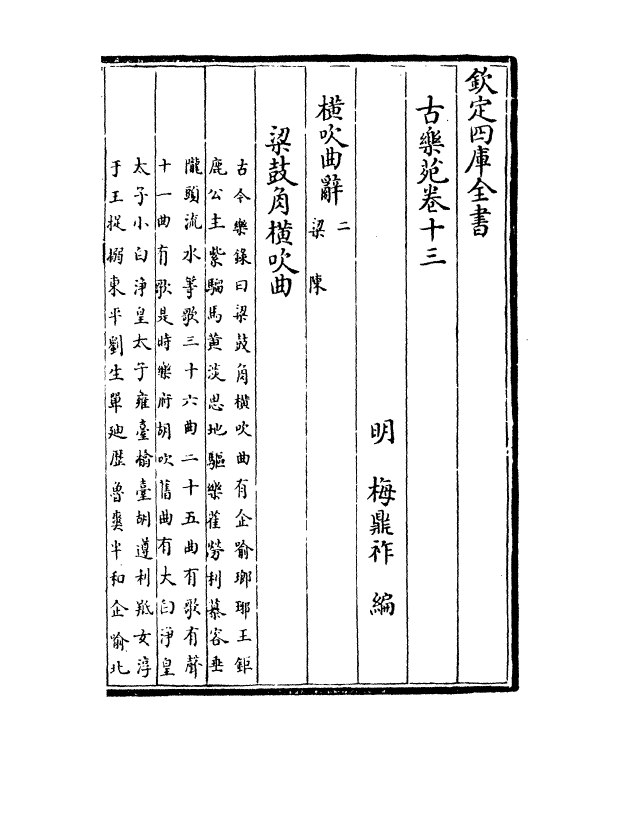 欽定四庫全書
古樂苑卷十三
明 梅鼎祚 編
橫吹曲辭二
梁 陳
梁鼓角橫吹曲
古今樂錄曰梁鼓角橫吹曲有企喻瑯琊王鉅
鹿公主紫騮馬黃淡思地驅樂雀勞利慕容垂
隴頭流水等歌三十六曲二十五曲有歌有聲
十一曲有歌是時樂府胡吹舊曲有大白淨皇
太子小白淨皇太子雍臺榆臺胡遵利羝女淳
于王捉搦東平劉生單迪歷魯爽半和企喻北